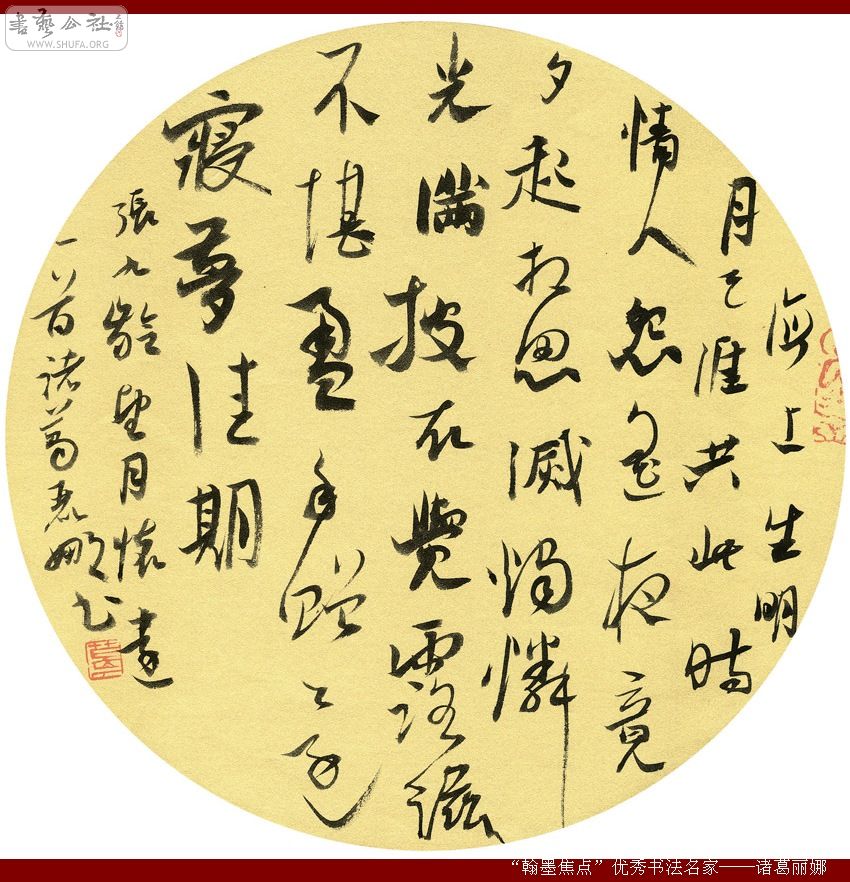 書藝公社
WWW.SHUFA.ORG
海上生明
月天涯共此時
情人怨遙夜竟
夕起相思滅燭憐
光滿披衣覺露滋
不堪盈手贈還
寢夢佳期
張九齡望月懷遠
一首諸葛麗娜書
“翰墨焦点”优秀书法名家——诸葛丽娜